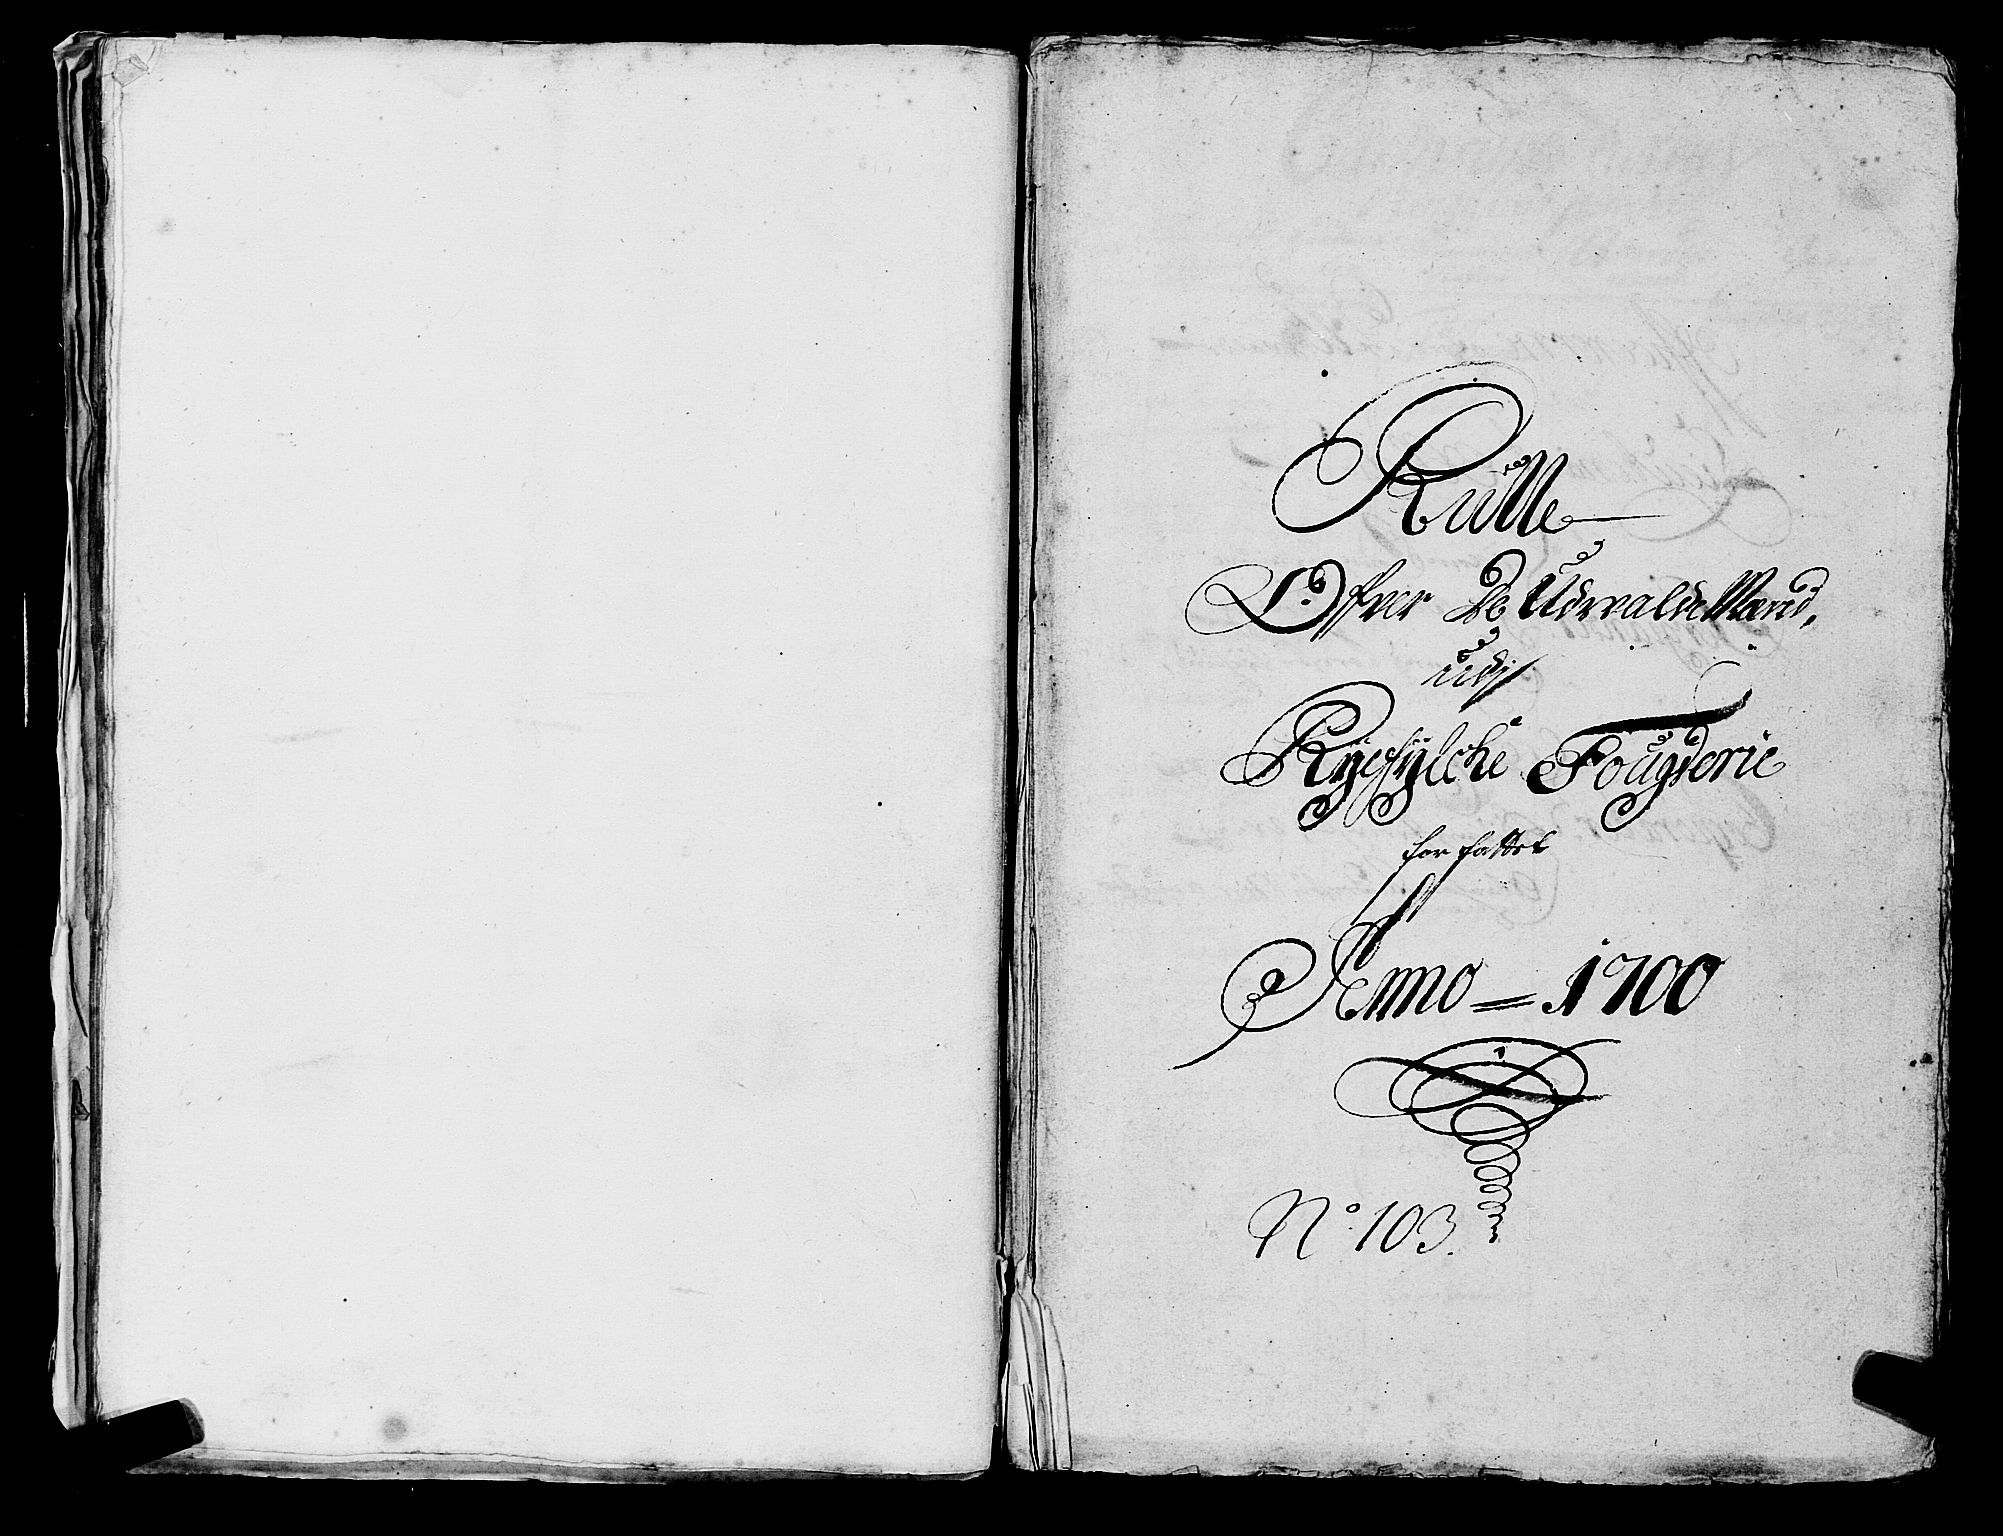 Rulle
Offver De Udvalde Mænd,
udj
Rÿefÿlche Fougderie
forfattet
Anno = 1700
No. 103.